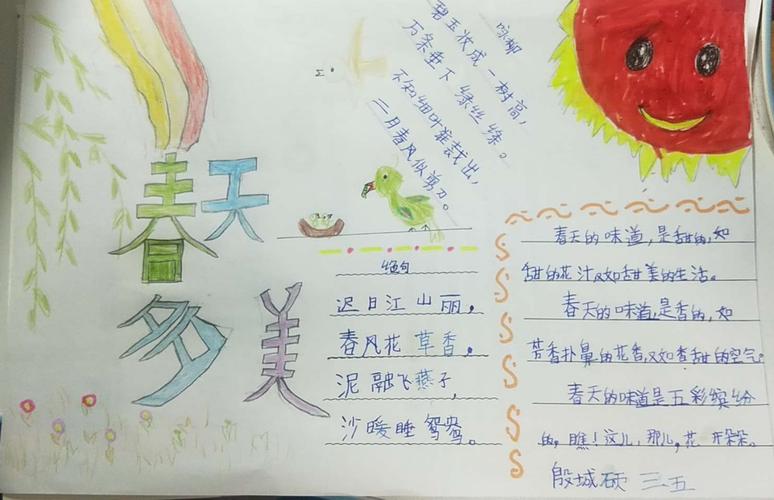 春天
多美
咏柳
碧玉妆成一树高，
万条垂下绿丝绦。
不知细叶谁裁出，
二月春风似剪刀。
绝句
迟日江山丽，
春风花草香。
泥融飞燕子，
沙暖睡鸳鸯。
春天的味道，是甜的，如
甜的花汁，又如甜美的生活。
春天的味道，是香的，如
芳香扑鼻的花香，又如香甜的空气。
春天的味道是五彩缤纷
的，瞧！这儿，那儿，花开朵朵。
殷城硕 三五